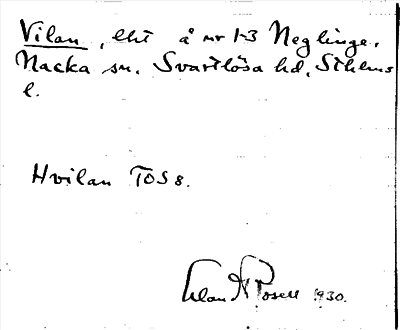 Vilan, lht å nr 1-3 Neglinge,
Nacka sn. Svartlösa hd, Sthlms
l.
Hvilan TOS 8.
Rosell 1930.